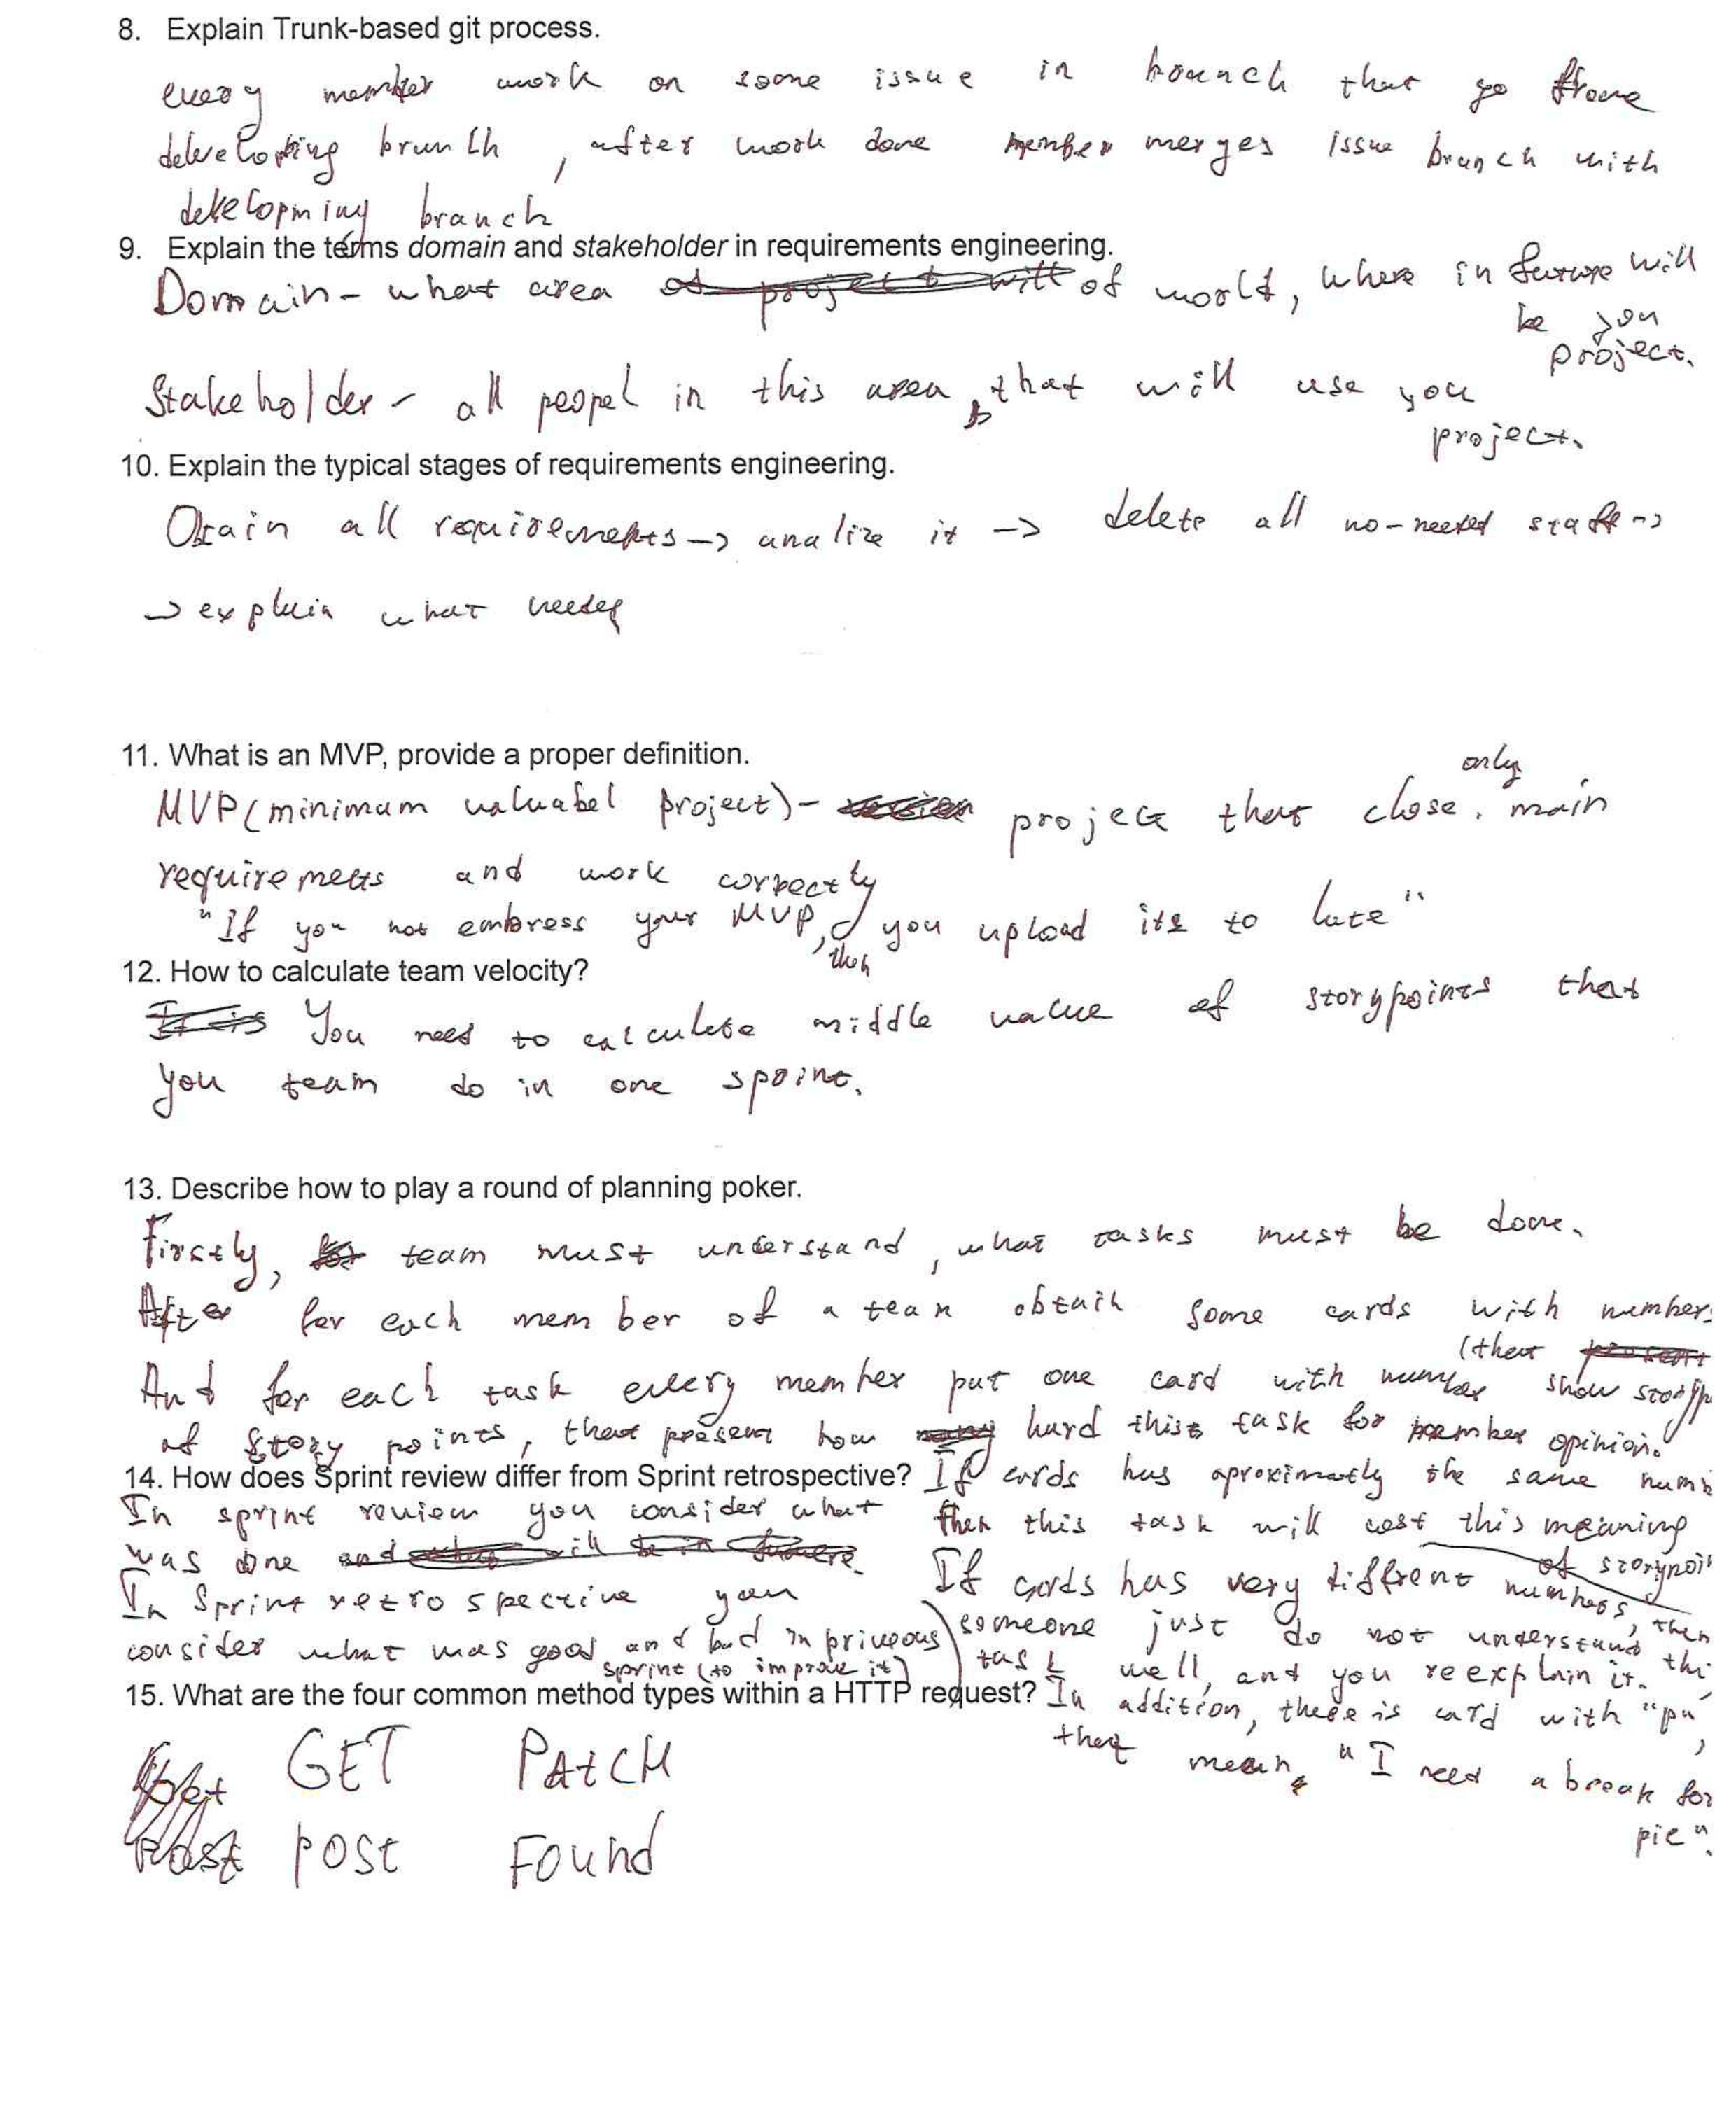 8. Explain Trunk-based git process.
every member work on some issue in branch that go from
developing brunch, after work done member merges issue branch with
developming branch
9. Explain the terms domain and stakeholder in requirements engineering.
Domain - what area of world, where in future will
be you
project.
Stakeholder - all peopel in this area, that will use you
project.
10. Explain the typical stages of requirements engineering.
Obtain all requirements -> analize it -> delete all no-needed staff ->
-> explain what needed
11. What is an MVP, provide a proper definition.
only
MVP (minimum valuabel project) - project that close main
requiremets and work correctly
"If you not embress your MVP, then you upload its to late"
12. How to calculate team velocity?
You need to calculete middle value of storypoints that
you team do in one sprint.
13. Describe how to play a round of planning poker.
Firstly, team must understand, what tasks must be done.
After for each member of a team obtain some cards with numbers
(that show storyp
And for each task every member put one card with number
of story points, that present how hard this task for member opinion.
If cards has aproximatly the same numb
then this task will cost this meaning
of storypoi
If cards has very diffrent numbers, then
someone just do not understand thi
task well, and you reexplain it.
In addition, there is card with "pi
that mean, "I need a break for
pie".
14. How does Sprint review differ from Sprint retrospective?
In sprint review you consider what
was done
In Sprint retrospective you
consider what was good and bad in priveous
sprint (to improve it)
15. What are the four common method types within a HTTP request?
GET PATCH
POST FOUND